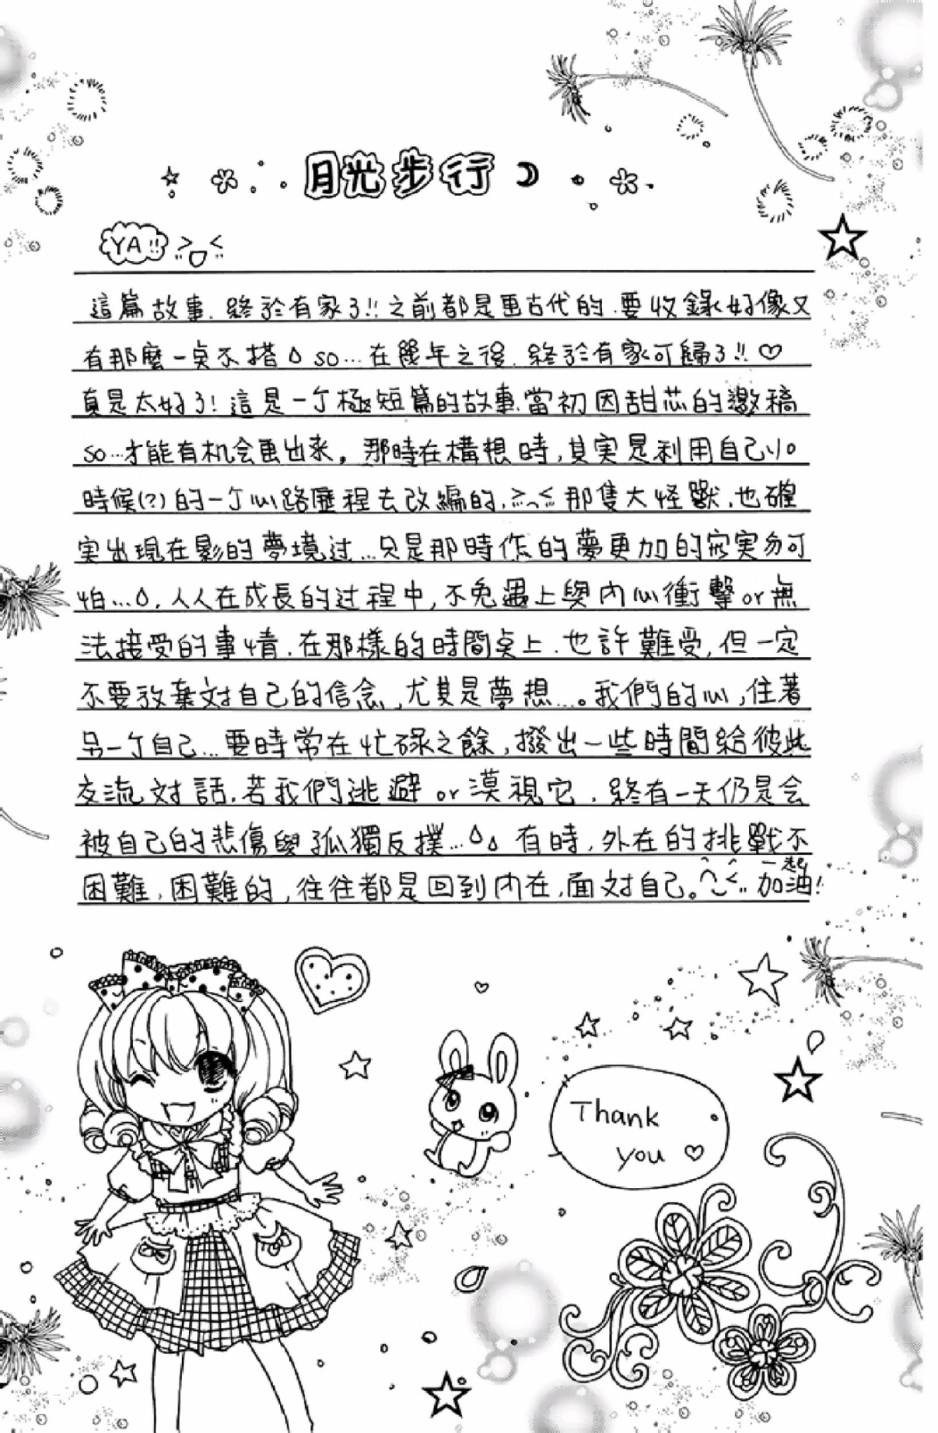 月光步行
YA!!
這篇故事.終於有家了!!之前都是画古代的.要收錄好像又
有那麼一点不搭 so…在幾年之後.終於有家可歸了!!♡
真是太好了!這是一个極短篇的故事.當初因甜芯的邀稿
so…才能有机会画出來。那時在構想時,其實是利用自己小
時候(?)的一个心路歷程去改編的.>_<那隻大怪獸.也確
實出現在影的夢境过…只是那時作的夢更加的寫実勿可
怕….人人在成長的过程中,不免遇上與內心衝擊or無
法接受的事情.在那樣的時間点上.也許難受,但一定
不要放棄対自己的信念,尤其是夢想…。我們的心,住著
另一个自己…要時常在忙碌之餘,撥出一些時間給彼此
交流対話.若我們逃避or漠視它.終有一天仍是会
被自己的悲傷與孤獨反撲… 有時,外在的挑戰不
困難.困難的,往往都是回到內在,面対自己。^_^..一起加油!
Thank
you ♡